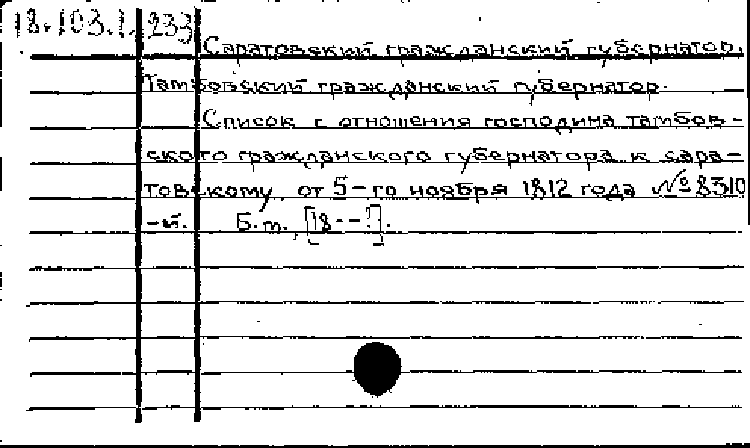 18.103.1.233
Саратовский гражданский губернатор.
Тамбовский гражданский губернатор.
Список с отношения господина тамбов-
ского гражданского губернатора к сара-
товскому, от 5-го ноября 1812 года № 8310
-й. Б.m., [18--?].